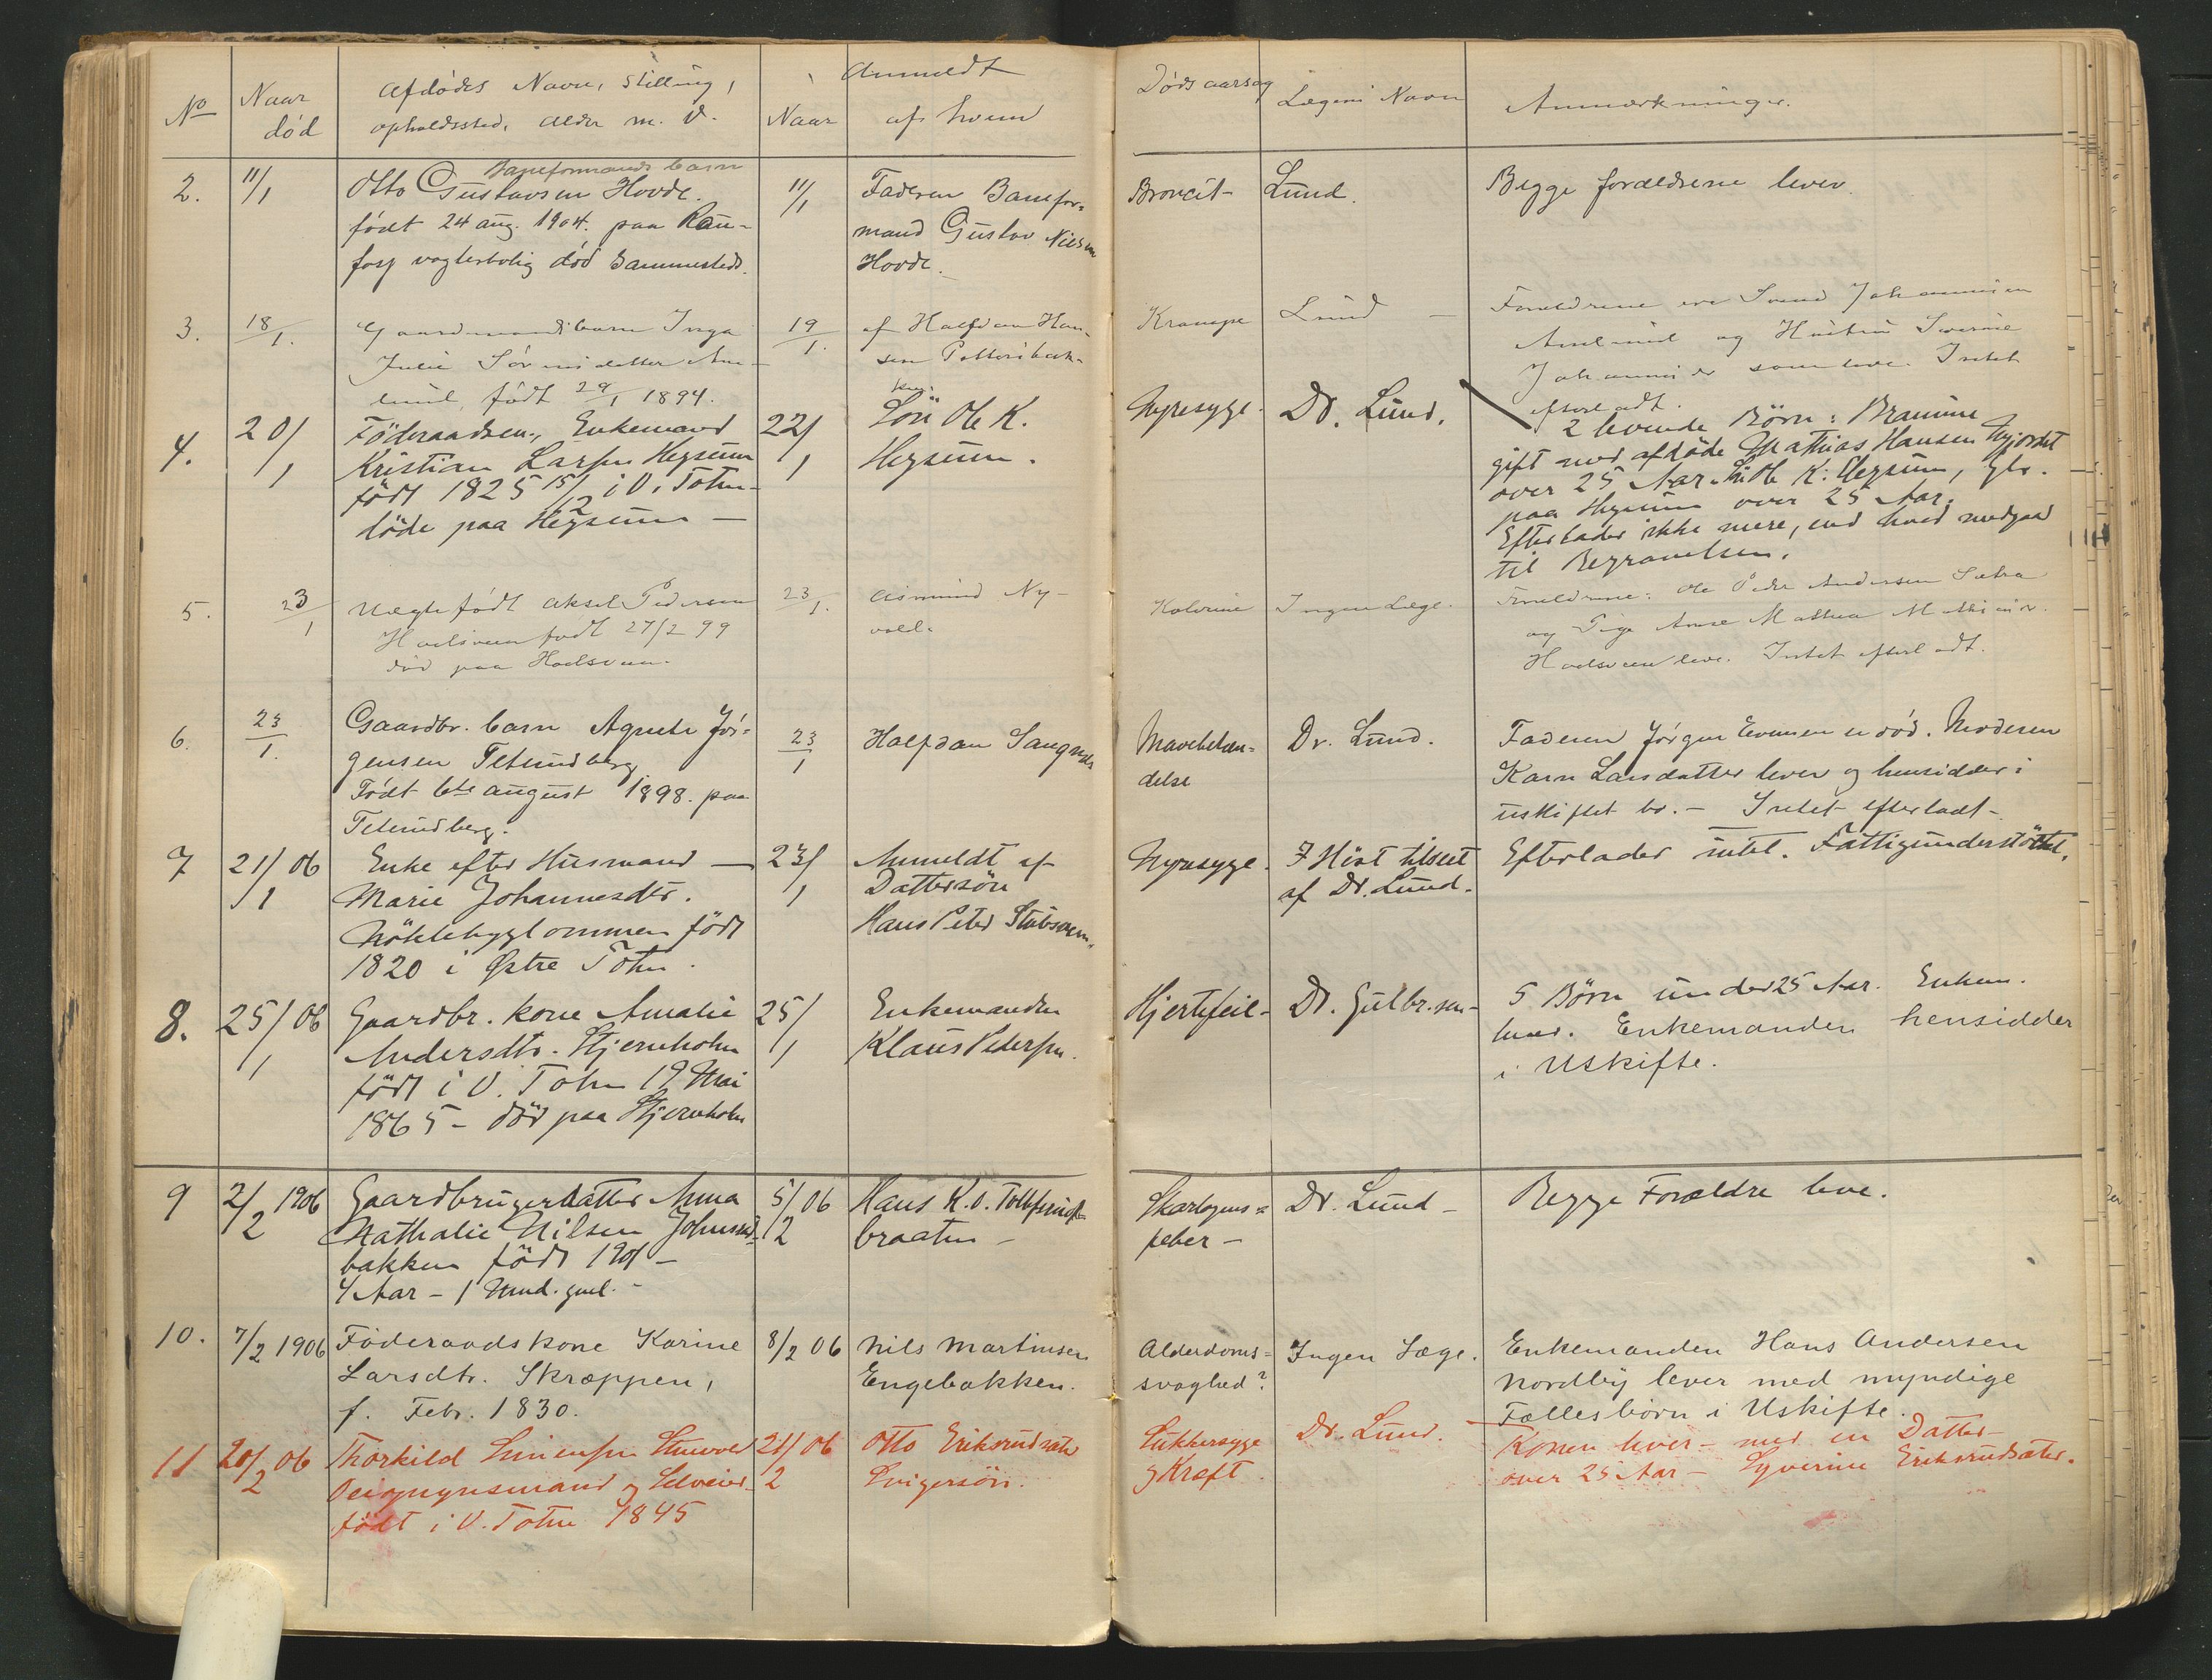 Anmeldt
No
Naar død
Afdødes Navn, Stilling, opholdssted, Alder m. V.
Naar
af hvem
Dødsaarsag
Lægens Navn
Anmærkninger.
2.
11/1
Baneformands barn
Otto Gustavsen Hovde.
født 24 aug. 1904. paa Rau-
foss vogterbolig død Sammesteds.
11/1
Faderen Banefor-
mand Gustav Nilsen
Hovde.
Broncit-
Lund.
Begge forældrene lever.
3.
18/1.
Gaardmandsbarn Inga
Julie
født 29/1 1894.
19/1.
af Halfdan Han-
sen
Krampe
Lund —
Forældrene ere Svend Johannesen
og Hustru
som leve. Intet
efterladt.
4.
20/1
Föderaadsm., Enkemand
Kristian Larsen Hegsum
født 1825 15/12 i V. Toten
døde paa Hegsum —
22/1
Sön Ole K.
Hegsum.
Nyresyge.
Dr. Lund.
2 levende Børn:
gift med afdøde Mathias Hansen
over 25 Aar. Ole K. Hegsum, gbr.
paa Hegsum over 25 Aar.
Efterlader ikke mere, end hvad medgaar
til Begravelsen.
5.
23/1
Uægtefödt Aksel Pedersen
født 27/2 99
død paa
23/1.
Asmund Ny-
vold.
Ingen Læge.
Forældrene: Ole Peder Andersen
og Pige Anne Mathea
leve. Intet efterladt.
6.
23/1.
Gaardbr. barn Agnete Jør-
gensen Teterudberg
Født 6te august 1898. paa
Teterudberg.
23/1
Halfdan Sangnæs
Mavebetæn-
delse
Dr. Lund.
Faderen Jørgen Evensen er død. Moderen
Karn Larsdatter lever og hensidder i
uskiftet bo. — Intet efterladt —
7
21/1 06
Enke efter Husmand —
Marie Johannesdtr.
født
1820 i Østre Toten.
23/1
Anmeldt af
Dattersön
Hans Peter Stubsveen.
Nyresyge.
I Høst tilseet
af Dr. Lund.
Efterlader intet. Fattigunderstöttet.
8.
25/1 06
Gaardbr. kone Amalie
Andersdtr. Stjerneholm
født i V. Toten 19 Mai
1865 — død paa Stjerneholm
25/1
Enkemanden
Klaus Pedersen.
Hjertefeil —
Dr. Gulbr.sen —
5 Børn under 25 Aar. Enkem.
lever. Enkemanden hensidder
i Uskifte.
9
2/2 1906
Gaardbrugerdatter Anna
Nathalie Nilsen Johnsrud-
bakken född 1901 —
4 Aar — 1 Mnd. gml. —
5/2 06
Hans K.
braaten —
Skarlagens-
feber —
Dr. Lund —
Begge Forældre leve.
10.
7/2 1906
Föderaadskone Karine
Larsdtr. Skræppen,
f. Febr. 1830.
8/2 06
Nils Martinsen
Engebakken.
Alderdoms-
svaghed?
Ingen Læge.
Enkemanden Hans Andersen
Nordby lever med myndige
Fællesbörn i Uskifte.
11
20/2 06
Thorkild Simensen
og Selveier
født i V. Toten 1845
21/2 06
Otto Eriksrudsæter
Svigersön.
Sukkersyge
og Kræft.
Dr. Lund.
Konen lever — med en Datter —
over 25 Aar — Syverine Eriksrudsæter.